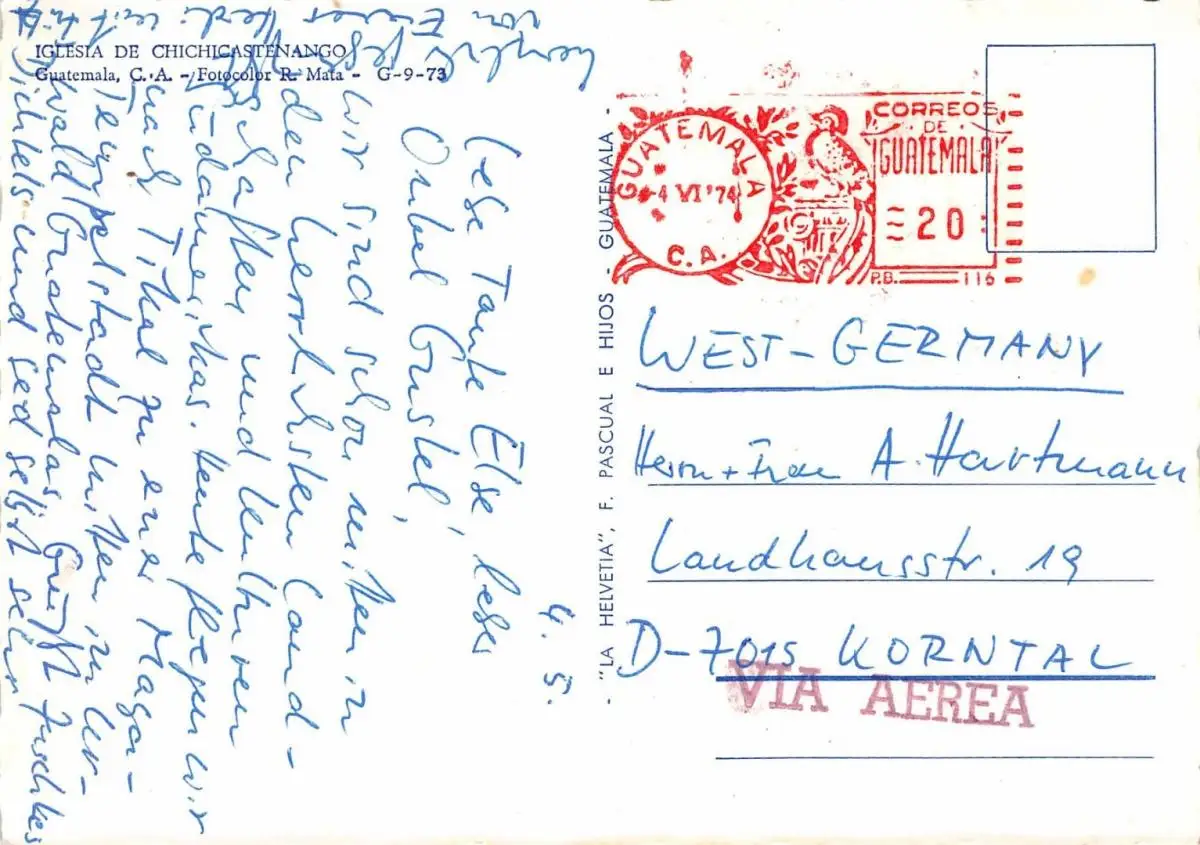 IGLESIA DE CHICHICASTENANGO
Guatemala, C. A. - Fotocolor R. Mata - G-9-73
4. 5.
Liebe Tante Else, lieber
Onkel Gustel,
wir sind schon mitten in
den herrlichsten Land-
schaften und
Indianer. Heute fliegen wir
nach Tikal zu einer Maya-
Tempelstadt mitten im Ur-
wald Guatemalas.
und seid selbst sehr
herzlich
von Eurer
- "LA HELVETIA", F. PASCUAL E HIJOS - GUATEMALA -
GUATEMALA
4 VI '74
C.A.
CORREOS
DE
GUATEMALA
20
P.B. 116
WEST-GERMANY
Herrn + Frau A. Hartmann
Landhausstr. 19
D-7015 KORNTAL
VIA AEREA